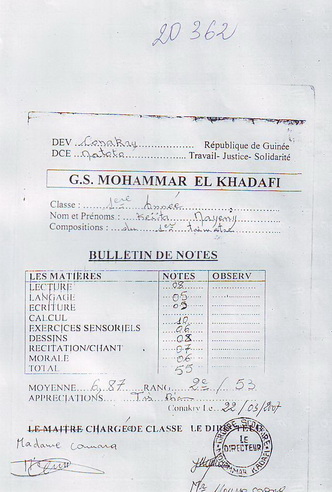 20 362
DEV Conakry République de Guinée
DCE Matoto Travail- Justice- Solidarité
G.S. MOHAMMAR EL KHADAFI
Classe : 1ère Année
Nom et Prénoms : Keita
Compositions : du 1er trimestre
BULLETIN DE NOTES
LES MATIÈRES NOTES OBSERV
LECTURE 08
LANGAGE 05
ECRITURE 09
CALCUL 10
EXERCICES SENSORIELS 06
DESSINS 08
RECITATION/CHANT 07
MORALE 06
TOTAL 55
MOYENNE 6,87 RANG 2e / 53
APPRECIATIONS Très bien
Conakry Le 22/03/2007
LE MAITRE CHARGÉ DE CLASSE LE DIRECTEUR
Madame Camara
LE DIRECTEUR